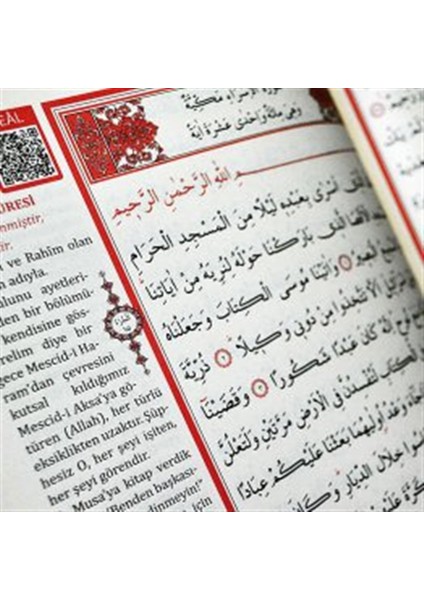 EÂL
ÛRESİ
nmiştir,
tir.
ve Rahîm olan
adıyla.
olunu ayetleri-
den bir bölümü-
kendisine gös-
relim diye bir
gece Mescid-i Ha-
ram'dan çevresini
kutsal kıldığımız
Mescid-i Aksa'ya gö-
türen (Allah), her türlü
eksiklikten uzaktır. Şüp-
hesiz O, her şeyi işiten,
her şeyi görendir.
Musa'ya kitap verdik
Benden başkası-
dinmeyin!"
için
الْإِسْرَاءِ مَكِّيَّةٌ
وَهِيَ مِائَةٌ وَاِحْدٰى عَشْرَةَ اٰيَةً
مِ اللّٰهِ الرَّحْمٰنِ الرَّحِيمِ
اَسْرٰى بِعَبْدِهِ لَيْلًا مِنَ الْمَسْجِدِ الْحَرَامِ
الَّذِي بَارَكْنَا حَوْلَهُ لِنُرِيَهُ مِنْ اٰيَاتِنَا
الْبَصِيرُ ١ وَاٰتَيْنَا مُوسَى الْكِتَابَ وَجَعَلْنَاهُ
اَلَّا تَتَّخِذُوا مِنْ دُونِي وَكِيلًا ٢ ذُرِّيَّةَ
نُوحٍ اِنَّهُ كَانَ عَبْدًا شَكُورًا ٣ وَقَضَيْنَا
الْكِتَابِ لَتُفْسِدُنَّ فِي الْاَرْضِ مَرَّتَيْنِ وَلَتَعْلُنَّ
وَعْدُ اُولٰيهُمَا بَعَثْنَا عَلَيْكُمْ عِبَادًا
خِلَالَ الدِّيَارِ وَكَانَ